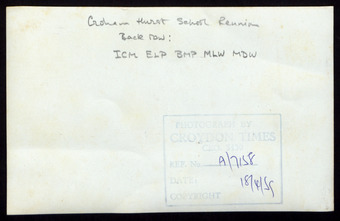 Croham Hurst School Reunion
Back row:
ICM ELP BMP MLW MDW
PHOTOGRAPH BY
CROYDON TIMES
CROYDON
REF. No. A/7158
DATE: 18/4/59
COPYRIGHT